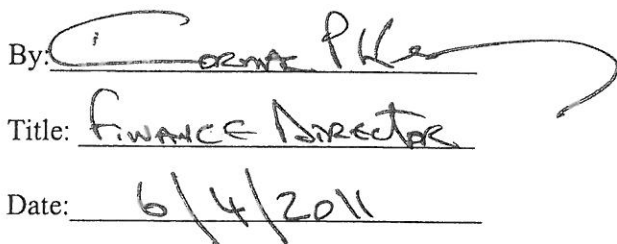 By: Cormac P
Title: Finance Director
Date: 6/4/2011